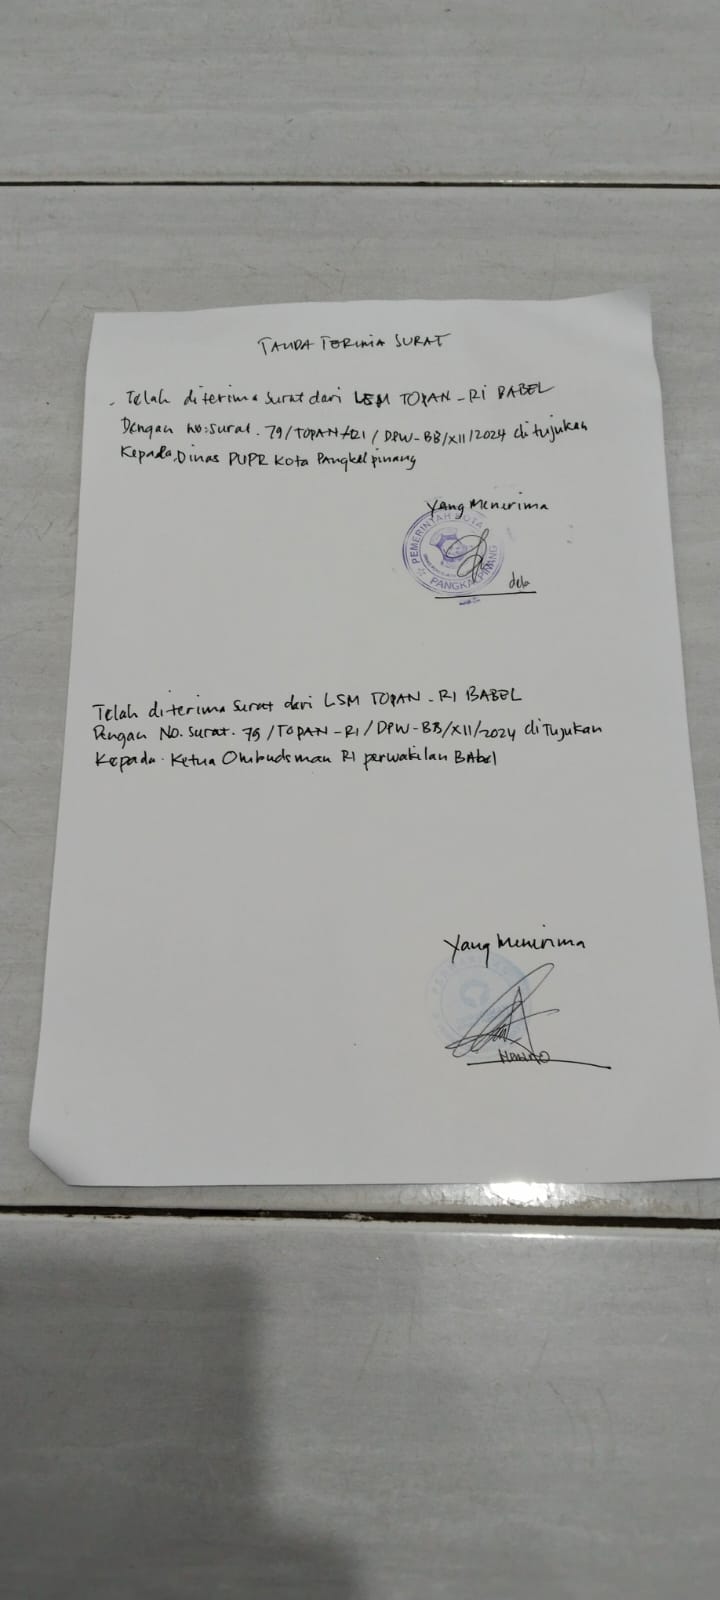 TANDA TERIMA SURAT
Telah diterima Surat dari LSM TOPAN-RI BABEL
Dengan no:surat. 79/TOPAN-RI/DPW-BB/XII/2024 ditujukan
Kepada. Dinas PUPR Kota Pangkalpinang
Yang Menerima
PEMERINTAH KOTA
PANGKALPINANG
dela
Telah diterima Surat dari LSM TOPAN-RI BABEL
Dengan No. Surat. 79/TOPAN-RI/DPW-BB/XII/2024 ditujukan
Kepada. Ketua Ombudsman RI perwakilan BAbel
Yang Menerima